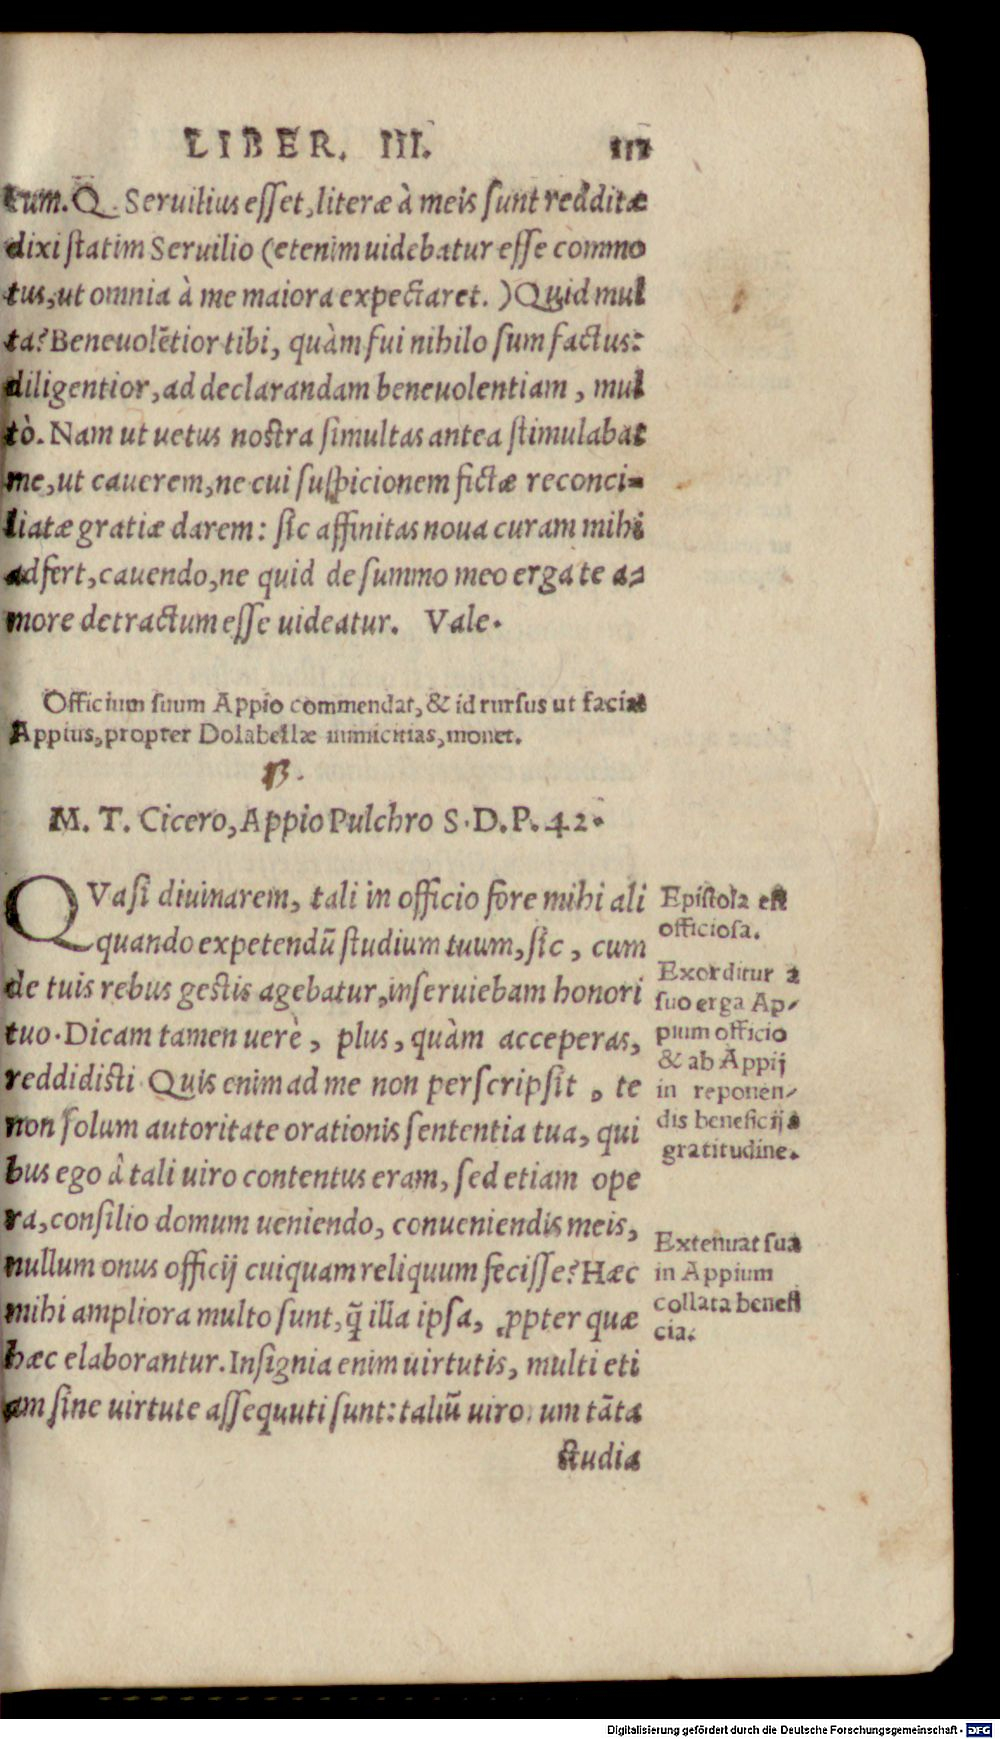 LIBER. III.
cum. Q. Seruilius esset, literæ à meis sunt redditæ
dixi statim Seruilio (etenim uidebatur esse commo
tus, ut omnia à me maiora expectaret.) Quid mul
ta? Beneuolētior tibi, quàm fui nihilo sum factus:
diligentior, ad declarandam beneuolentiam, mul
tò. Nam ut uetus nostra simultas antea stimulabat
me, ut cauerem, ne cui suspicionem fictæ reconci-
liatæ gratiæ darem: sic affinitas noua curam mihi
adfert, cauendo, ne quid de summo meo erga te a-
more detractum esse uideatur. Vale.
Officium suum Appio commendat, & id rursus ut faciat
Appius, propter Dolabellæ inimicitias, monet.
13.
M. T. Cicero, Appio Pulchro S. D. P. 42.
QVasi diuinarem, tali in officio fore mihi ali
quando expetendū studium tuum, sic, cum
de tuis rebus gestis agebatur, inseruiebam honori
tuo. Dicam tamen uerè, plus, quàm acceperas,
reddidisti Quis enim ad me non perscripsit, te
non solum autoritate orationis sententia tua, qui
bus ego à tali uiro contentus eram, sed etiam ope
ra, consilio domum ueniendo, conueniendis meis,
nullum onus officij cuiquam reliquum fecisse? Hæc
mihi ampliora multo sunt, q̃ illa ipsa, ꝓpter quæ
hæc elaborantur. Insignia enim uirtutis, multi eti
am sine uirtute assequuti sunt: taliū uirorum tāta
studia
Epistola est
officiosa.
Exorditur a
suo erga Ap-
pium officio
& ab Appij
in reponen-
dis beneficijs
gratitudine.
Extenuat sua
in Appium
collata benefi
cia.
Digitalisierung gefördert durch die Deutsche Forschungsgemeinschaft - DFG